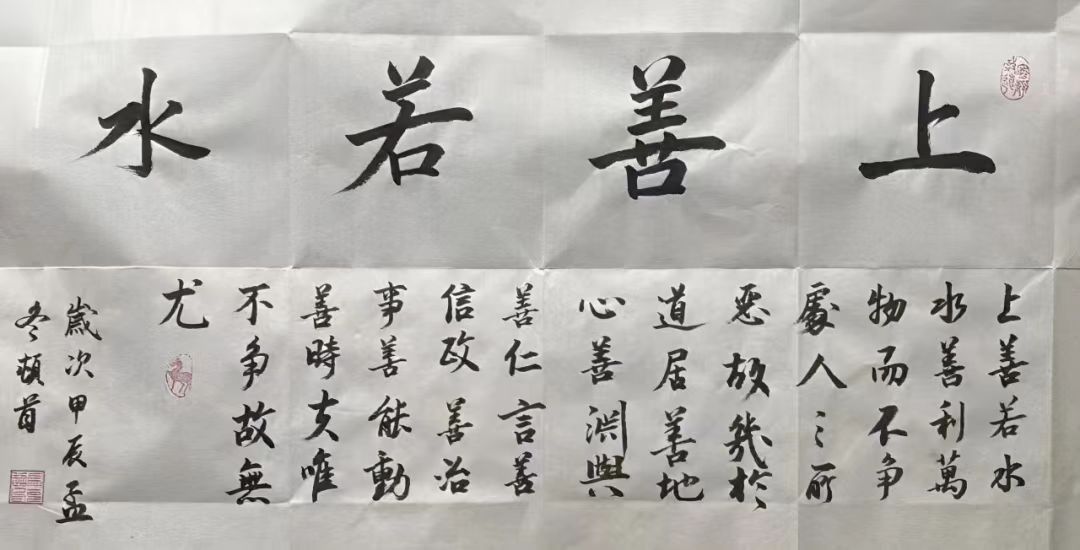 上善若水
上善若水
水善利萬
物而不争
處人之所
惡故幾於
道居善地
心善淵與
善仁言善
信政善治
事善能動
善時夫唯
不争故無
尤
歲次甲辰孟
冬頓首